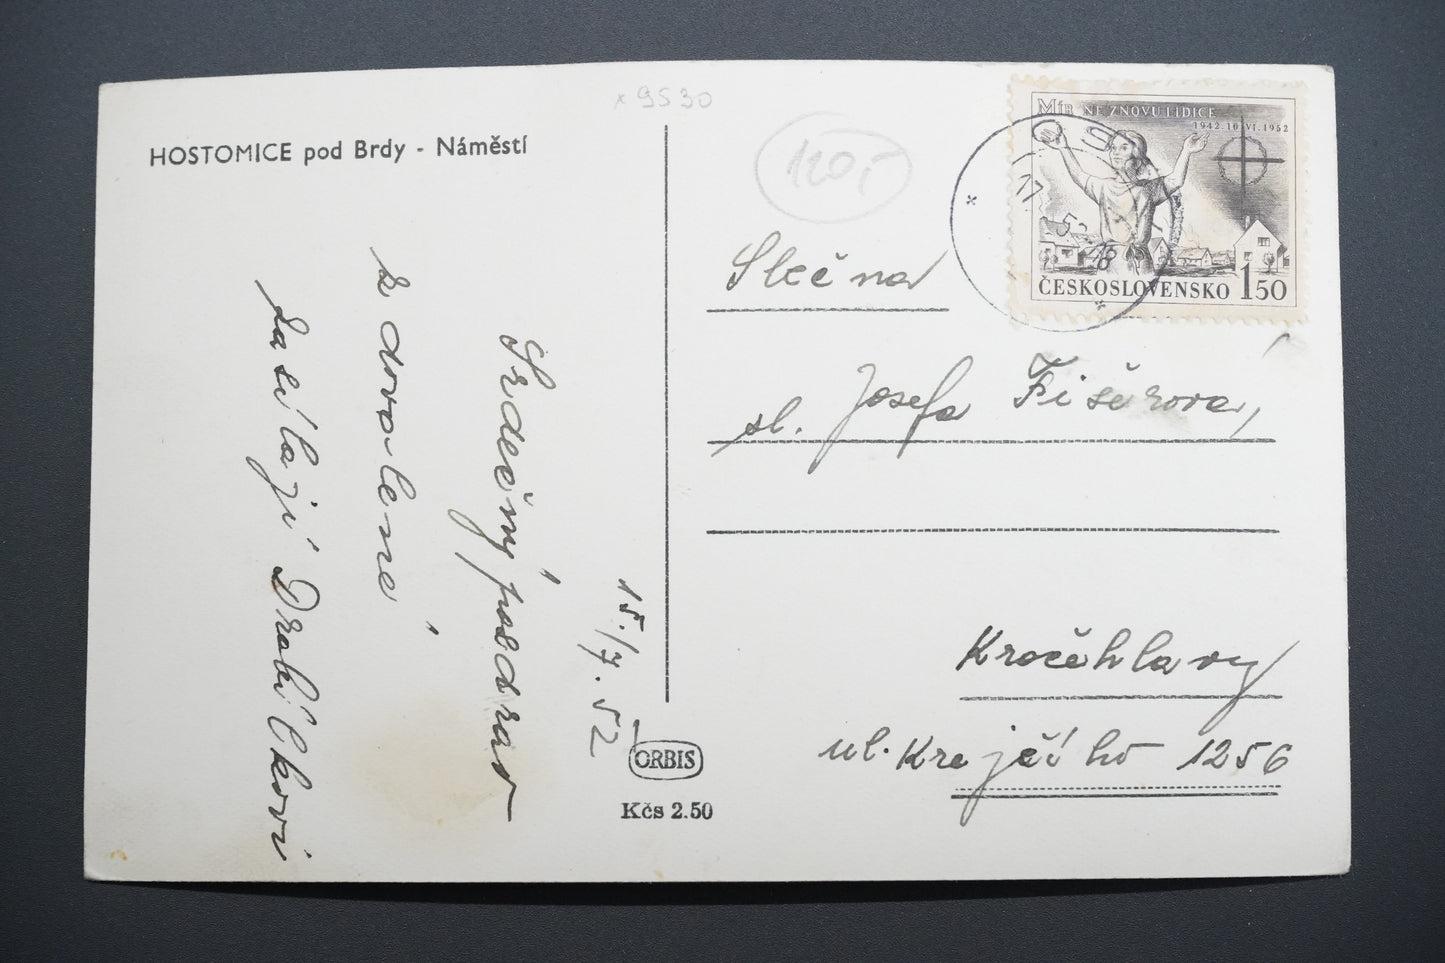 × 9530
HOSTOMICE pod Brdy - Náměstí
120,-
MÍR NE ZNOVU LIDICE
1942.10.VI.1952
ČESKOSLOVENSKO 150
Slečna
sl. Josefa Fišerová,
Kročehlavy
ul. Krejčího 1256
15./7.52
Srdečný pozdrav
z dovolené
zasílají Drabíčkovi
ORBIS
Kčs 2.50